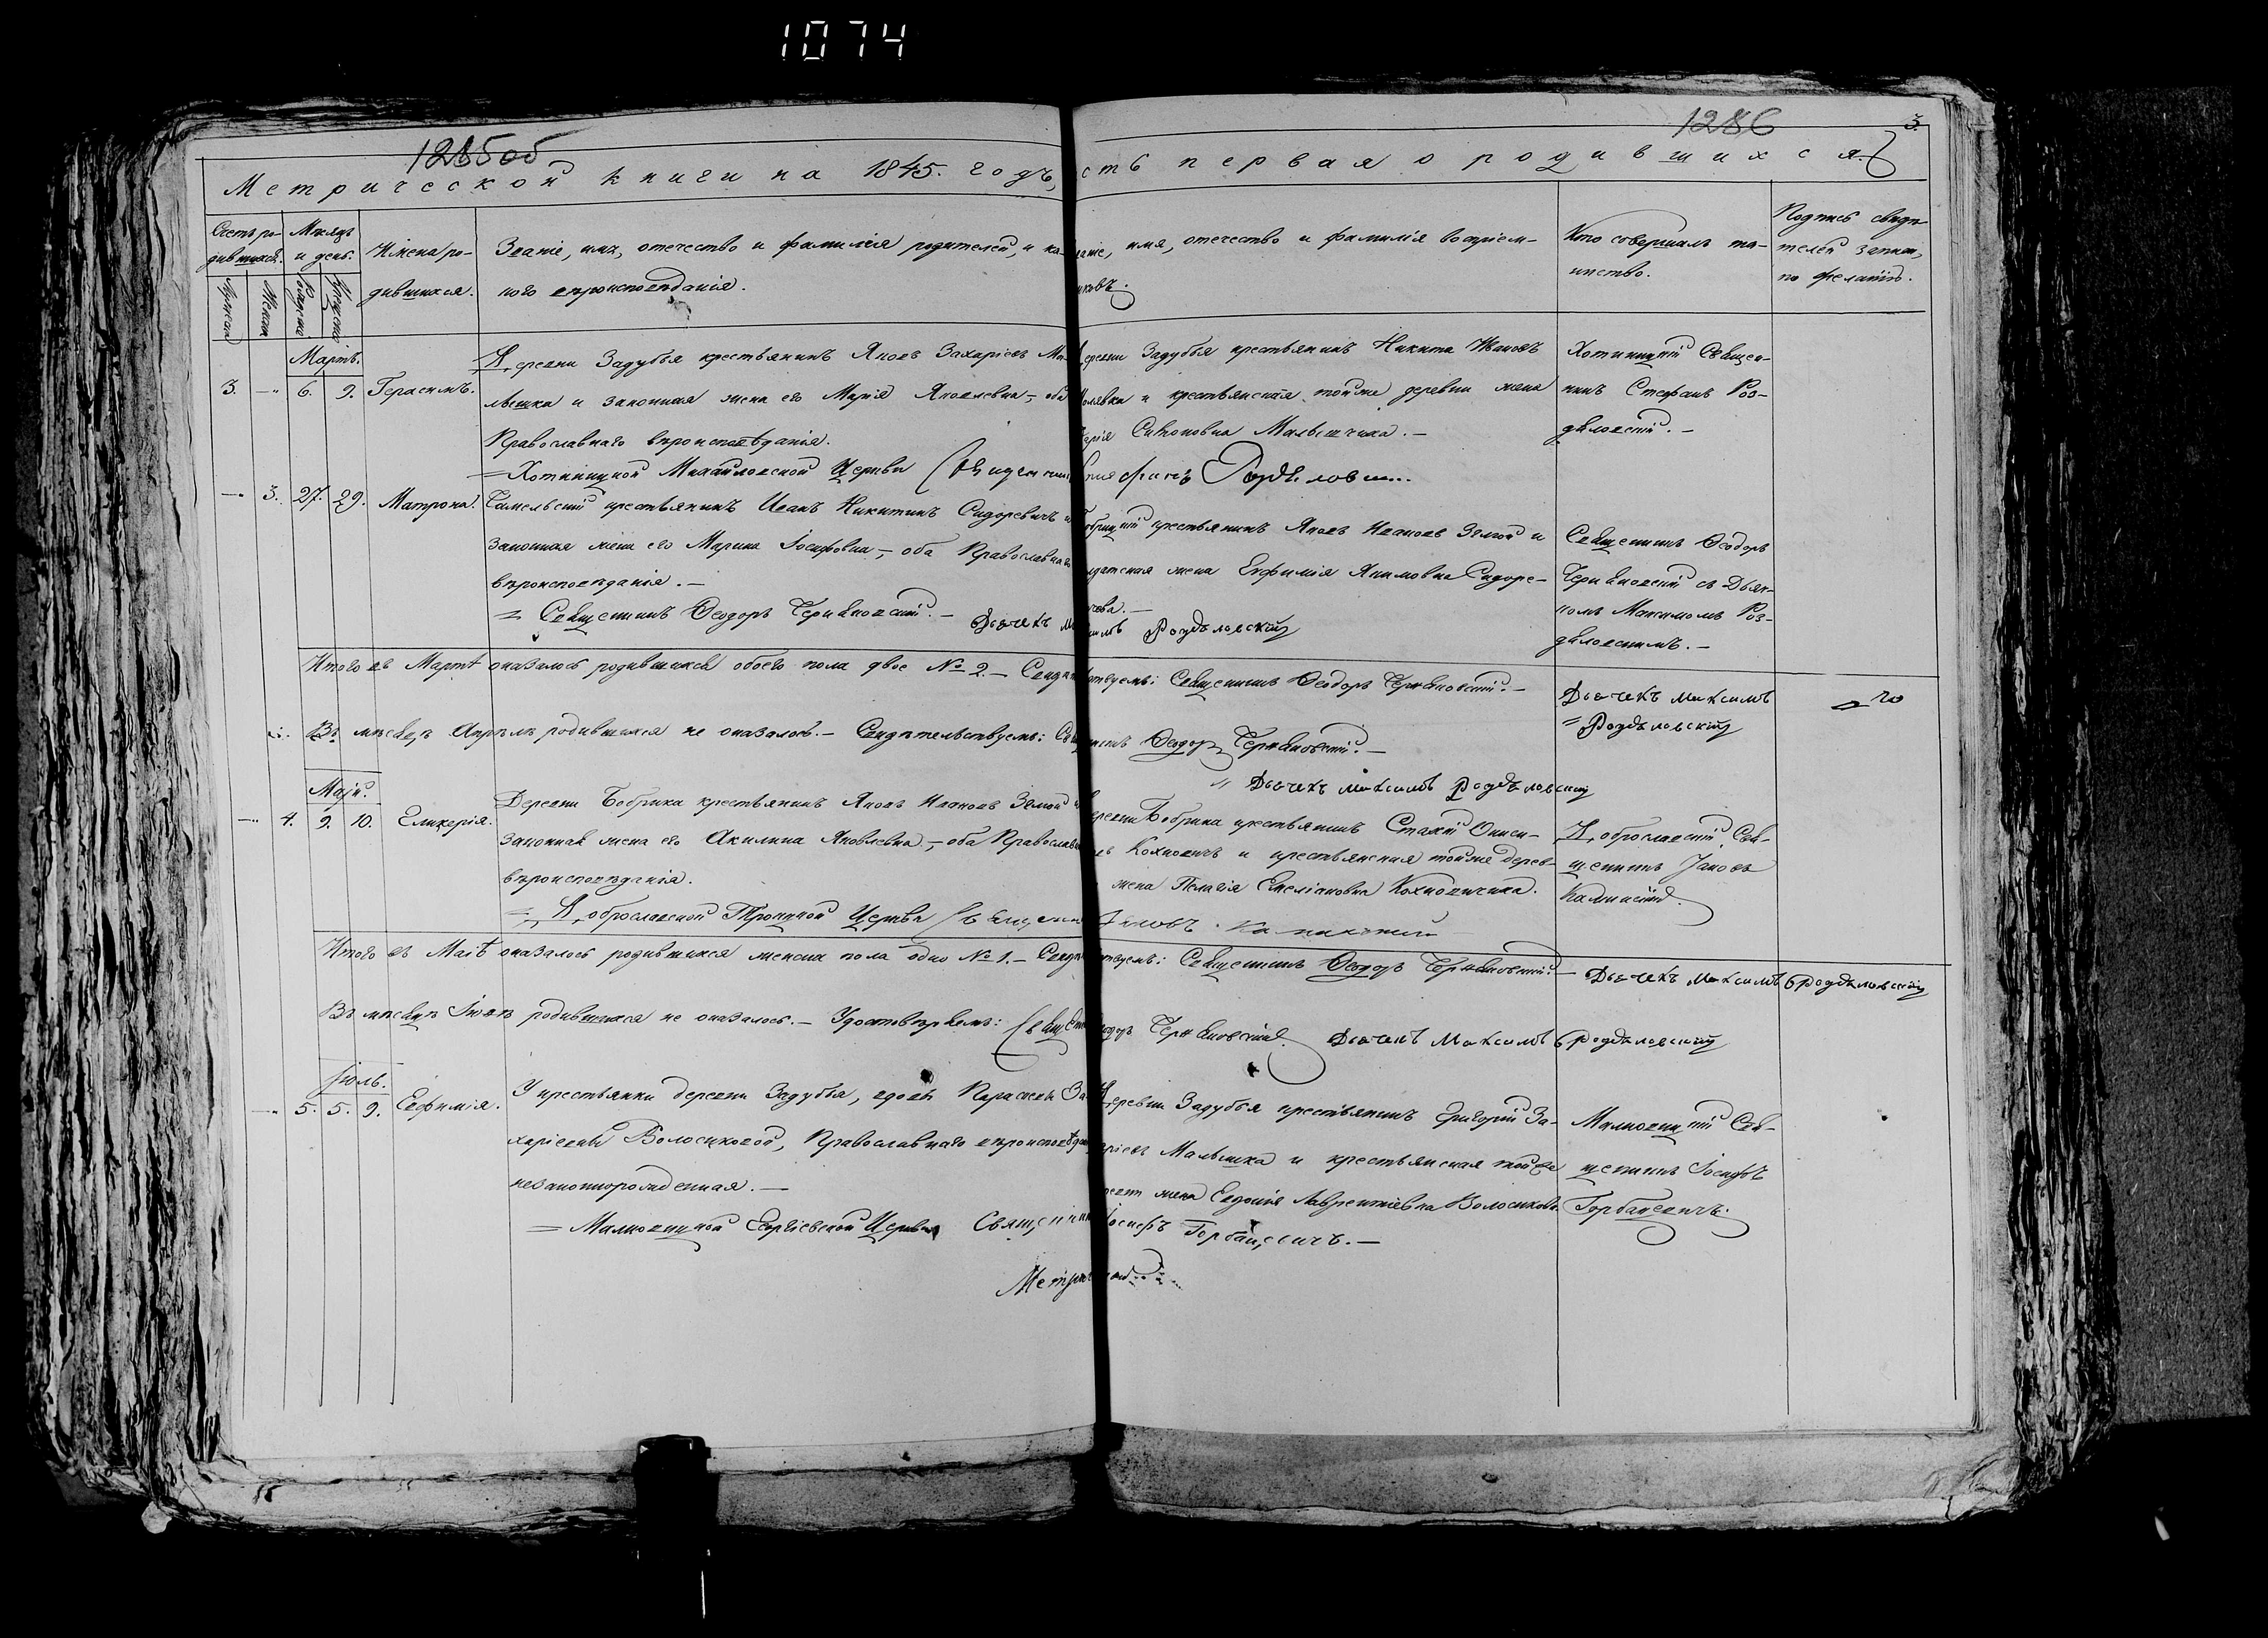 1074
1285об
1286
3.
Метрической книги на 1845. годъ, сть первая о родившихся.
Счетъ родившихся.
Мѣсяцъ и день.
Имена родившихся.
Званіе, имя, отечество и фамилія родителей, и ка-
кого вѣроисповѣданія.
аніе, имя, отечество и фамилія воспріем-
иковъ.
Кто совершалъ та-
инство.
Подпись свидѣ-
телей записи,
по желанію.
Мужеска
Женска
Рожденія
Крещенія
Мартъ.
3. — 6. 9. Герасимъ.
Деревни Задубья крестьянинъ Яковъ Захаріевъ Ма-
лышка и законная жена его Марія Яковлевна, — оба
Православнаго вѣроисповѣданія.
= Хотиницкой Михайловской Церкви Священникъ Стефанъ Роздѣловскій
Деревни Задубья крестьянинъ Никита Ивановъ
и крестьянская тойже деревни жена
Марія Малышчика. —
Хотиницкій Священ-
никъ Стефанъ Роз-
дѣловскій. —
— 3. 27. 29. Матрона.
крестьянинъ Иванъ Никитинъ Сидоревичъ и
законная жена его Марина Іосифовна, — оба Православнаго
вѣроисповѣданія. —
= Священникъ Ѳеодоръ Чернѣковскій. — Дьячекъ Максимъ Роздѣловскій
крестьянинъ Яковъ Ивановъ Зямой и
солдатская жена Евфимія Якимовна Сидоре-
чева. —
Священникъ Ѳеодоръ
Чернѣковскій съ Дьяч-
комъ Максимомъ Роз-
дѣловскимъ. —
Итого въ Мартѣ оказалось родившихся обоего пола двое № 2. — Свидѣтельствуемъ: Священникъ Ѳеодоръ Чернѣковскій. —
Дьячекъ Максимъ
= Роздѣловскій
Въ мѣсяцѣ Апрѣлѣ родившихся не оказалось. — Свидѣтельствуемъ: Священникъ Ѳеодоръ Чернѣковскій. —
" Дьячекъ Максимъ Роздѣловскій
Маій.
— 4. 9. 10. Гликерія.
Деревни Бобрика крестьянинъ Яковъ Ивановъ Зямой и
законная жена его Акилина Яковлевна, — оба Православнаго
вѣроисповѣданія.
= Доброславской Троицкой Церкви Священникъ Іаковъ Калинскій
Деревни Бобрика крестьянинъ Стахій Ониси-
евъ Кохновичъ и крестьянская тойже дерев-
жена Пелагія Емеліановна Кохновичика.
Доброславскій Свя-
щенникъ Іаковъ
Калинскій.
Итого въ Маіѣ оказалось родившихся женска пола одно № 1. — Свидѣтельствуемъ: Священникъ Ѳеодоръ Чернѣковскій. — Дьячекъ Максимъ Роздѣловскій
Въ мѣсяцѣ Іюнѣ родившихся не оказалось. — Удостовѣряемъ: Священникъ Ѳеодоръ Чернѣковскій. Дьячекъ Максимъ Роздѣловскій
Іюль.
— 5. 5. 9. Евфимія.
У крестьянки деревни Задубья, вдовы Параскевы За-
харіевны Волосиковой, Православнаго вѣроисповѣданія
незаконнорожденная. —
= Малковицкой Георгіевской Церкви Священникъ Іосифъ Горбацевичъ. —
Деревни Задубья крестьянинъ Григорій За-
харіевъ Малышка и крестьянская тойже
деревни жена Евдокія Лаврентіевна Волосикова.
Малковицкій Свя-
щенникъ Іосифъ
Горбацевичъ.